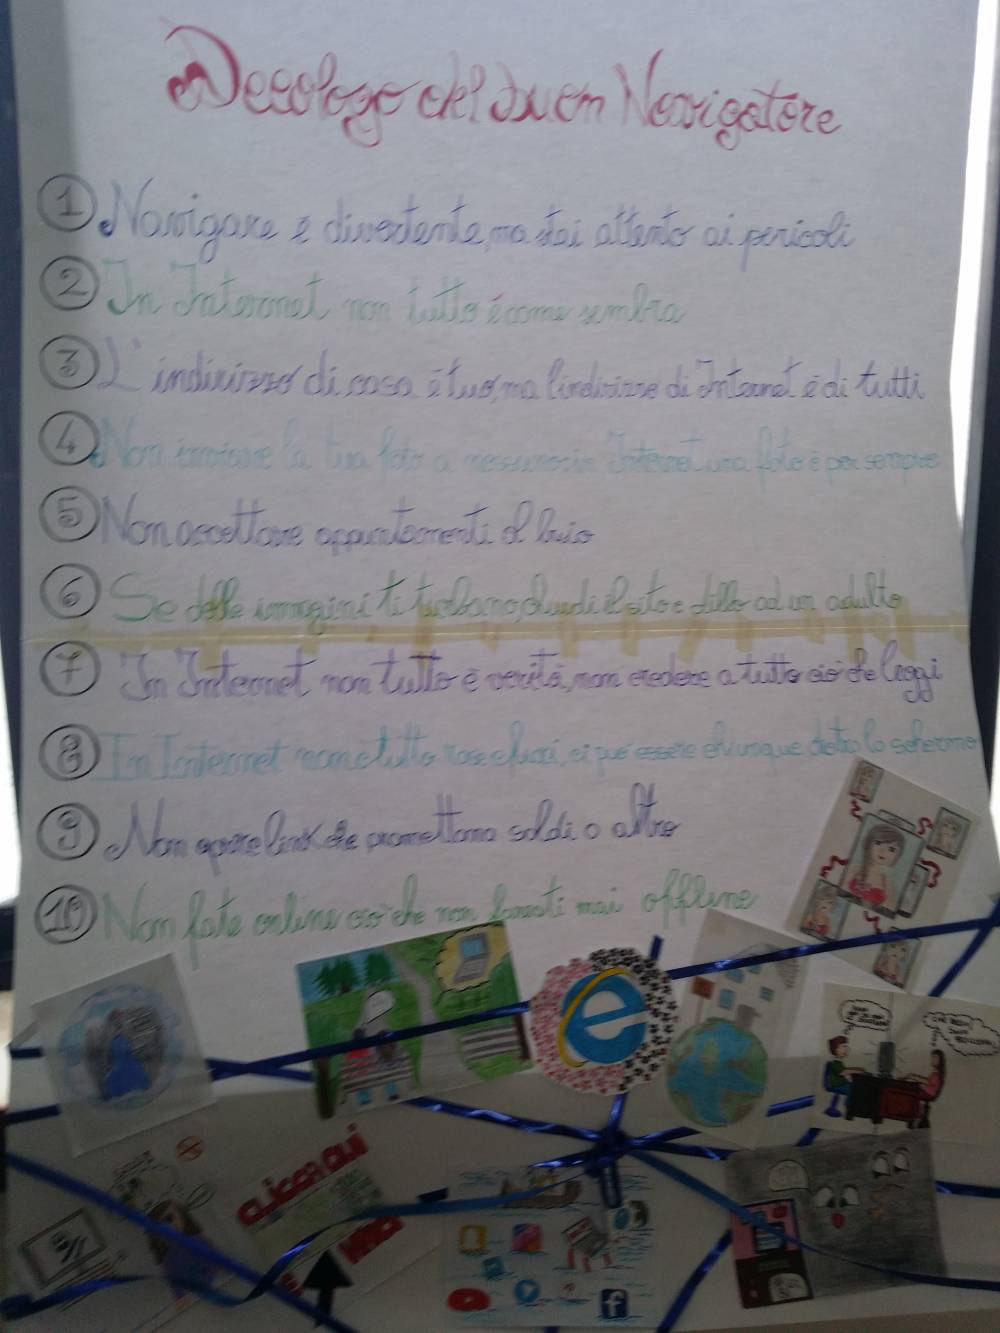 Decalogo del buon Navigatore
1 Navigare è divertente, ma stai attento ai pericoli
2 In Internet non tutto è come sembra
3 L'indirizzo di casa è tuo, ma l'indirizzo di Internet è di tutti
4 Non inviare la tua foto a nessuno: in Internet una foto è per sempre
5 Non accettare appuntamenti al buio
6 Se delle immagini ti turbano, chiudi il sito e dillo ad un adulto
7 In Internet non tutto è verità, non credere a tutto ciò che leggi
8 In Internet non è tutto rose e fiori, ci può essere chiunque dietro lo schermo
9 Non aprire link che promettono soldi o altro
10 Non fate online ciò che non faresti mai offline
CLICCA QUI